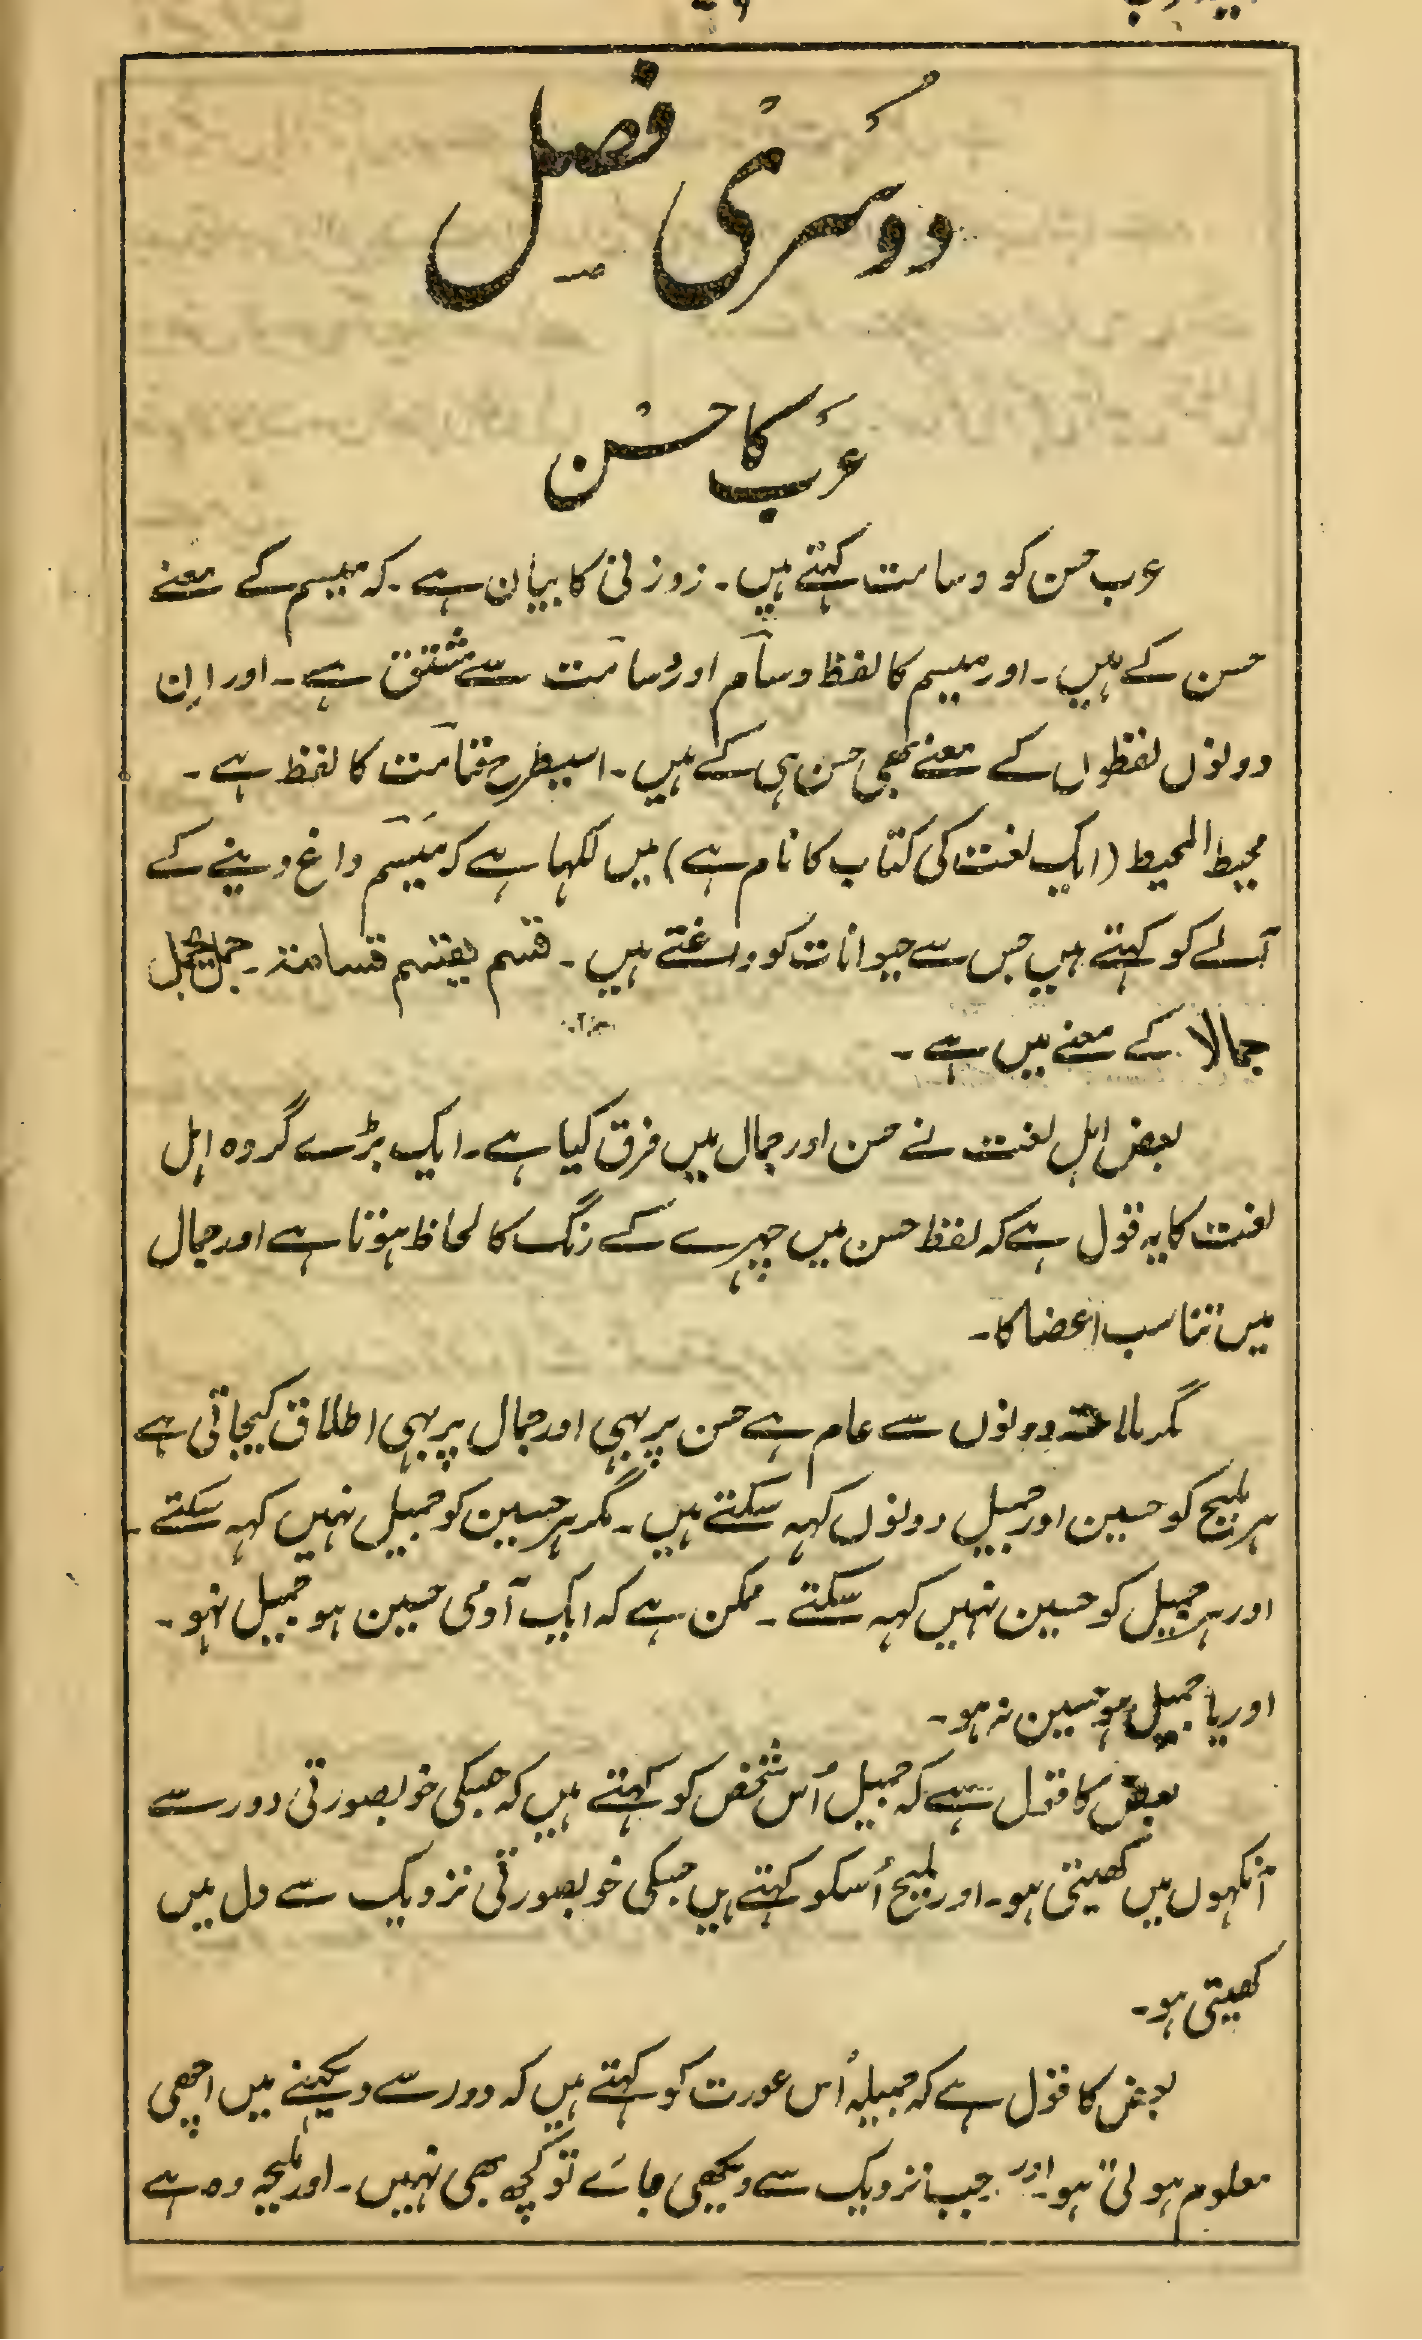 دوسری فصل
عرب کا حسن
عرب حسن کو وسامت کہتے ہیں۔ زوزنی کا بیان ہے۔ کہ میسم کے معنے
حسن کے ہیں۔ اور میسم کا لفظ وسام اور وسامت سے مشتق ہے۔ اور اِن
دونوں لفظوں کے معنے بھی حسن ہی کے ہیں۔ اسیطرح قسامت کا لفظ ہے۔
محیط المحیط (ایک لغت کی کتاب کا نام ہے) میں لکہا ہے کہ میسم داغ دینے کے
آلے کو کہتے ہیں جس سے حیوانات کو داغتے ہیں۔ قسم یقسم قسامتہ۔ جمل یجمل
جمالا کے معنے میں ہے۔
بعض اہل لغت نے حسن اور جمال میں فرق کیا ہے۔ ایک بڑے گروہ اہل
لغت کا یہ قول ہے کہ لفظ حسن میں چہرے کے رنگ کا لحاظ ہوتا ہے اور جمال
میں تناسب اعضا کا۔
مگر ملاحت دونوں سے عام ہے حسن پر بہی اور جمال پر بہی اطلاق کیجاتی ہے
ہر ملیح کو حسین اور جمیل دونوں کہہ سکتے ہیں۔ مگر ہر حسین کو جمیل نہیں کہہ سکتے۔
اور ہر جمیل کو حسین نہیں کہہ سکتے۔ ممکن ہے کہ ایک آدمی حسین ہو جمیل نہو۔
اور یا جمیل ہو حسین نہ ہو۔
بعض کا قول ہے کہ جمیل اُس شخص کو کہتے ہیں کہ جسکی خوبصورتی دور سے
آنکہوں میں کھبتی ہو۔ اور ملیح اُسکو کہتے ہیں جسکی خوبصورتی نزدیک سے دل میں
کھبتی ہو۔
بعض کا قول ہے کہ جمیلہ اُس عورت کو کہتے ہیں کہ دور سے دیکہنے میں اچھی
معلوم ہوتی ہو۔ اور جب نزدیک سے دیکھی جائے تو کچھ بھی نہیں۔ اور ملیحہ وہ ہے